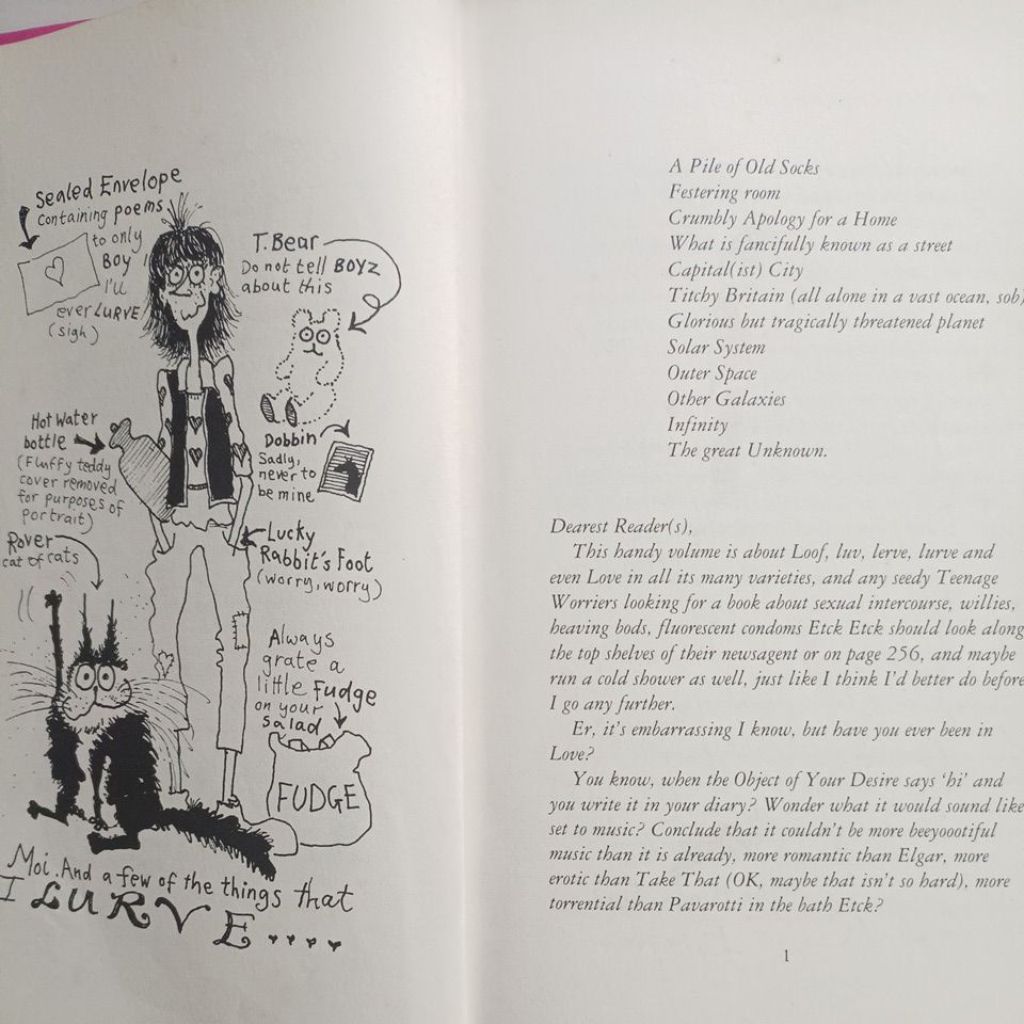 Sealed Envelope
containing poems
to only
BOY
I'll
ever LURVE
(sigh)
T. Bear
Do not tell BOYZ
about this
Hot water
bottle
(Fluffy teddy
cover removed
for purposes of
portrait)
Dobbin
Sadly,
never to
be mine
Rover
cat of cats
Lucky
Rabbit's Foot
(worry, worry)
Always
grate a
little Fudge
on your
salad
FUDGE
Moi. And a few of the things that
I LURVE....
A Pile of Old Socks
Festering room
Crumbly Apology for a Home
What is fancifully known as a street
Capital(ist) City
Titchy Britain (all alone in a vast ocean, sob)
Glorious but tragically threatened planet
Solar System
Outer Space
Other Galaxies
Infinity
The great Unknown.
Dearest Reader(s),
This handy volume is about Loof, luv, lerve, lurve and
even Love in all its many varieties, and any seedy Teenage
Worriers looking for a book about sexual intercourse, willies,
heaving bods, fluorescent condoms Etck Etck should look along
the top shelves of their newsagent or on page 256, and maybe
run a cold shower as well, just like I think I'd better do before
I go any further.
Er, it's embarrassing I know, but have you ever been in
Love?
You know, when the Object of Your Desire says 'hi' and
you write it in your diary? Wonder what it would sound like
set to music? Conclude that it couldn't be more beeyoootiful
music than it is already, more romantic than Elgar, more
erotic than Take That (OK, maybe that isn't so hard), more
torrential than Pavarotti in the bath Etck?
1